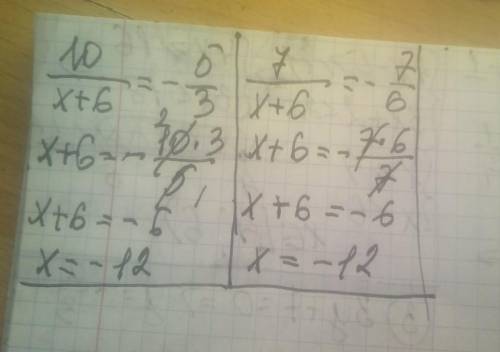 10/(x+6) = - 5/3
x+6 = - (10·3)/5
x+6 = - 6
x = - 12
7/(x+6) = - 7/6
x+6 = - (7·6)/7
x+6 = - 6
x = - 12